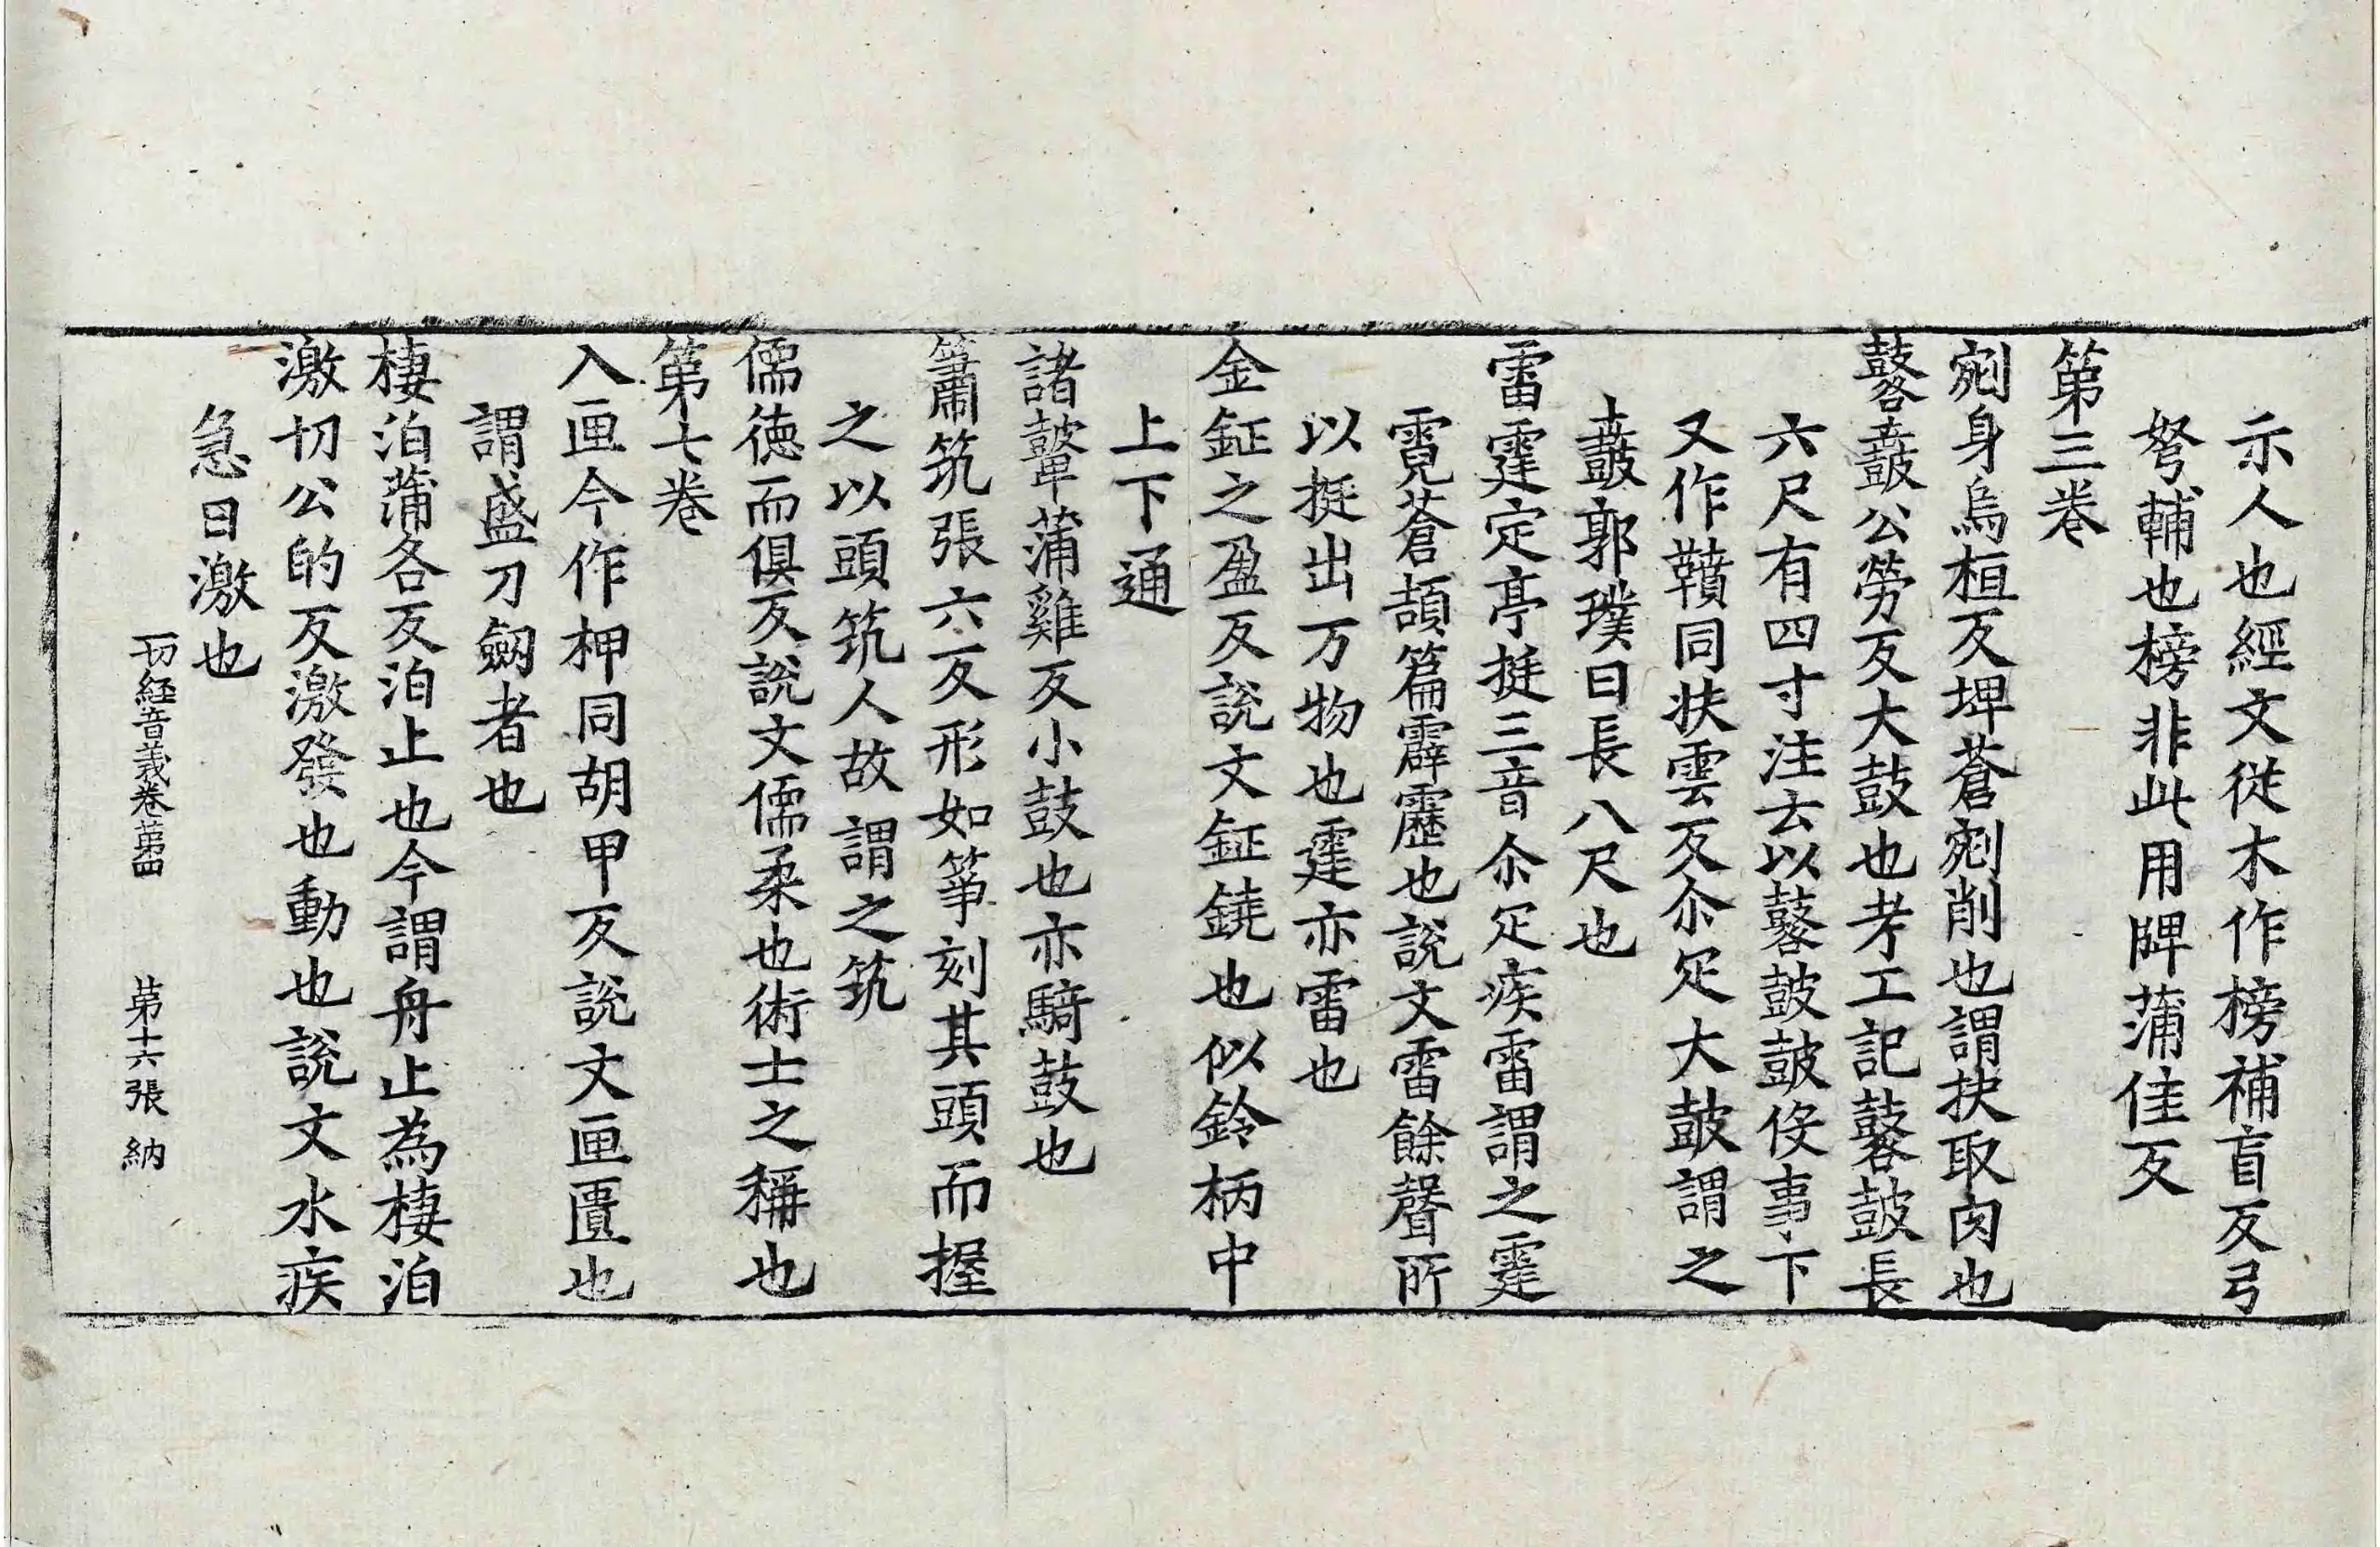 示人也經文從木作榜補盲反弓
弩輔也榜非此用牌蒲佳反
第三卷
剜身烏桓反埤蒼剜削也謂抉取肉也
鼛鼖公勞反大鼓也考工記鼛鼓長
六尺有四寸注云以鼛鼓鼓役事下
又作鞼同扶雲反尒疋大鼓謂之
鼖郭璞曰長八尺也
雷霆定亭挺三音尒疋疾雷謂之霆
霓蒼頡篇霹靂也說文雷餘聲所
以挺出万物也霆亦雷也
金鉦之盈反說文鉦鐃也似鈴柄中
上下通
諸鼙蒲雞反小鼓也亦騎鼓也
簫筑張六反形如箏刻其頭而握
之以頭筑人故謂之筑
儒德而俱反說文儒柔也術士之稱也
第七卷
入匣今作柙同胡甲反說文匣匱也
謂盛刀劒者也
棲泊蒲各反泊止也今謂舟止為棲泊
激切公的反激發也動也說文水疾
急曰激也
一切経音義卷第四　第十六張　納